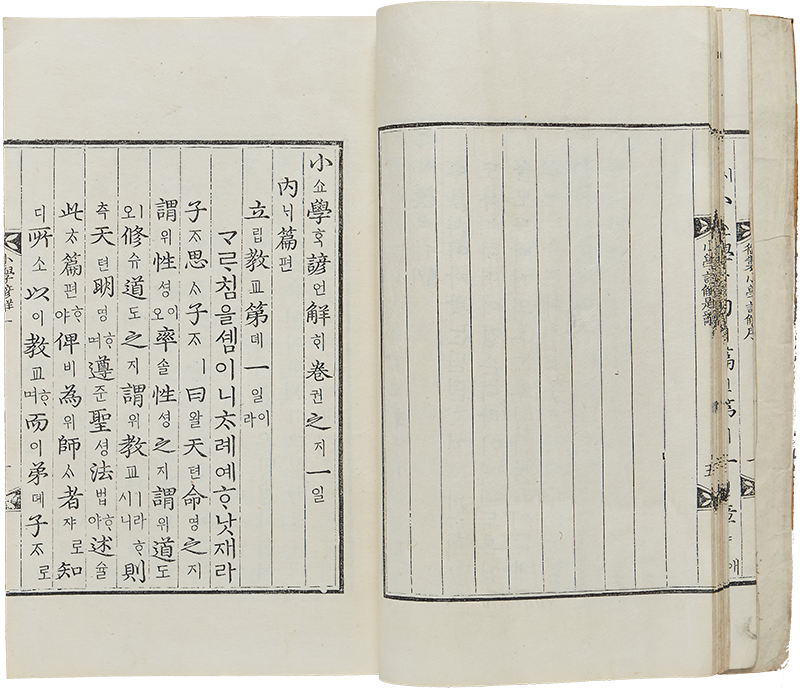 小쇼學ᄒᆞᆨ諺언解ᄒᆡ卷권之지一일
內ᄂᆡ篇편
立립敎교第뎨一일이라
ᄀᆞᄅᆞ침을셈이니ᄎᆞ례예ᄒᆞ낫재라
子ᄌᆞ思ᄉᆞ子ᄌᆞㅣ曰왈天텬命명之지
謂위性셩이오率솔性셩之지謂위道도
ㅣ오修슈道도之지謂위敎교ㅣ라ᄒᆞ시니則
측天텬明명ᄒᆞ며遵준聖셩法법ᄒᆞ야述슐
此ᄎᆞ篇편ᄒᆞ야俾비爲위師ᄉᆞ者쟈로知
디所소以이敎교ᄒᆞ며而이弟뎨子ᄌᆞ로
小學諺解 一